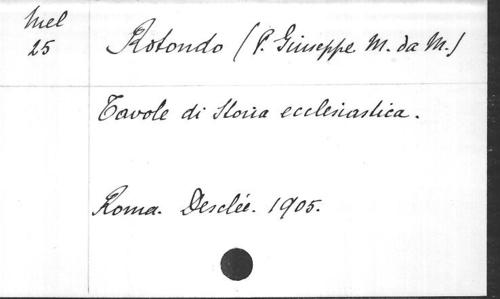 Mel
25
Rotondo (P. Giuseppe M. da M.)
Tavole di Storia ecclesiastica.
Roma. Desclée. 1905.